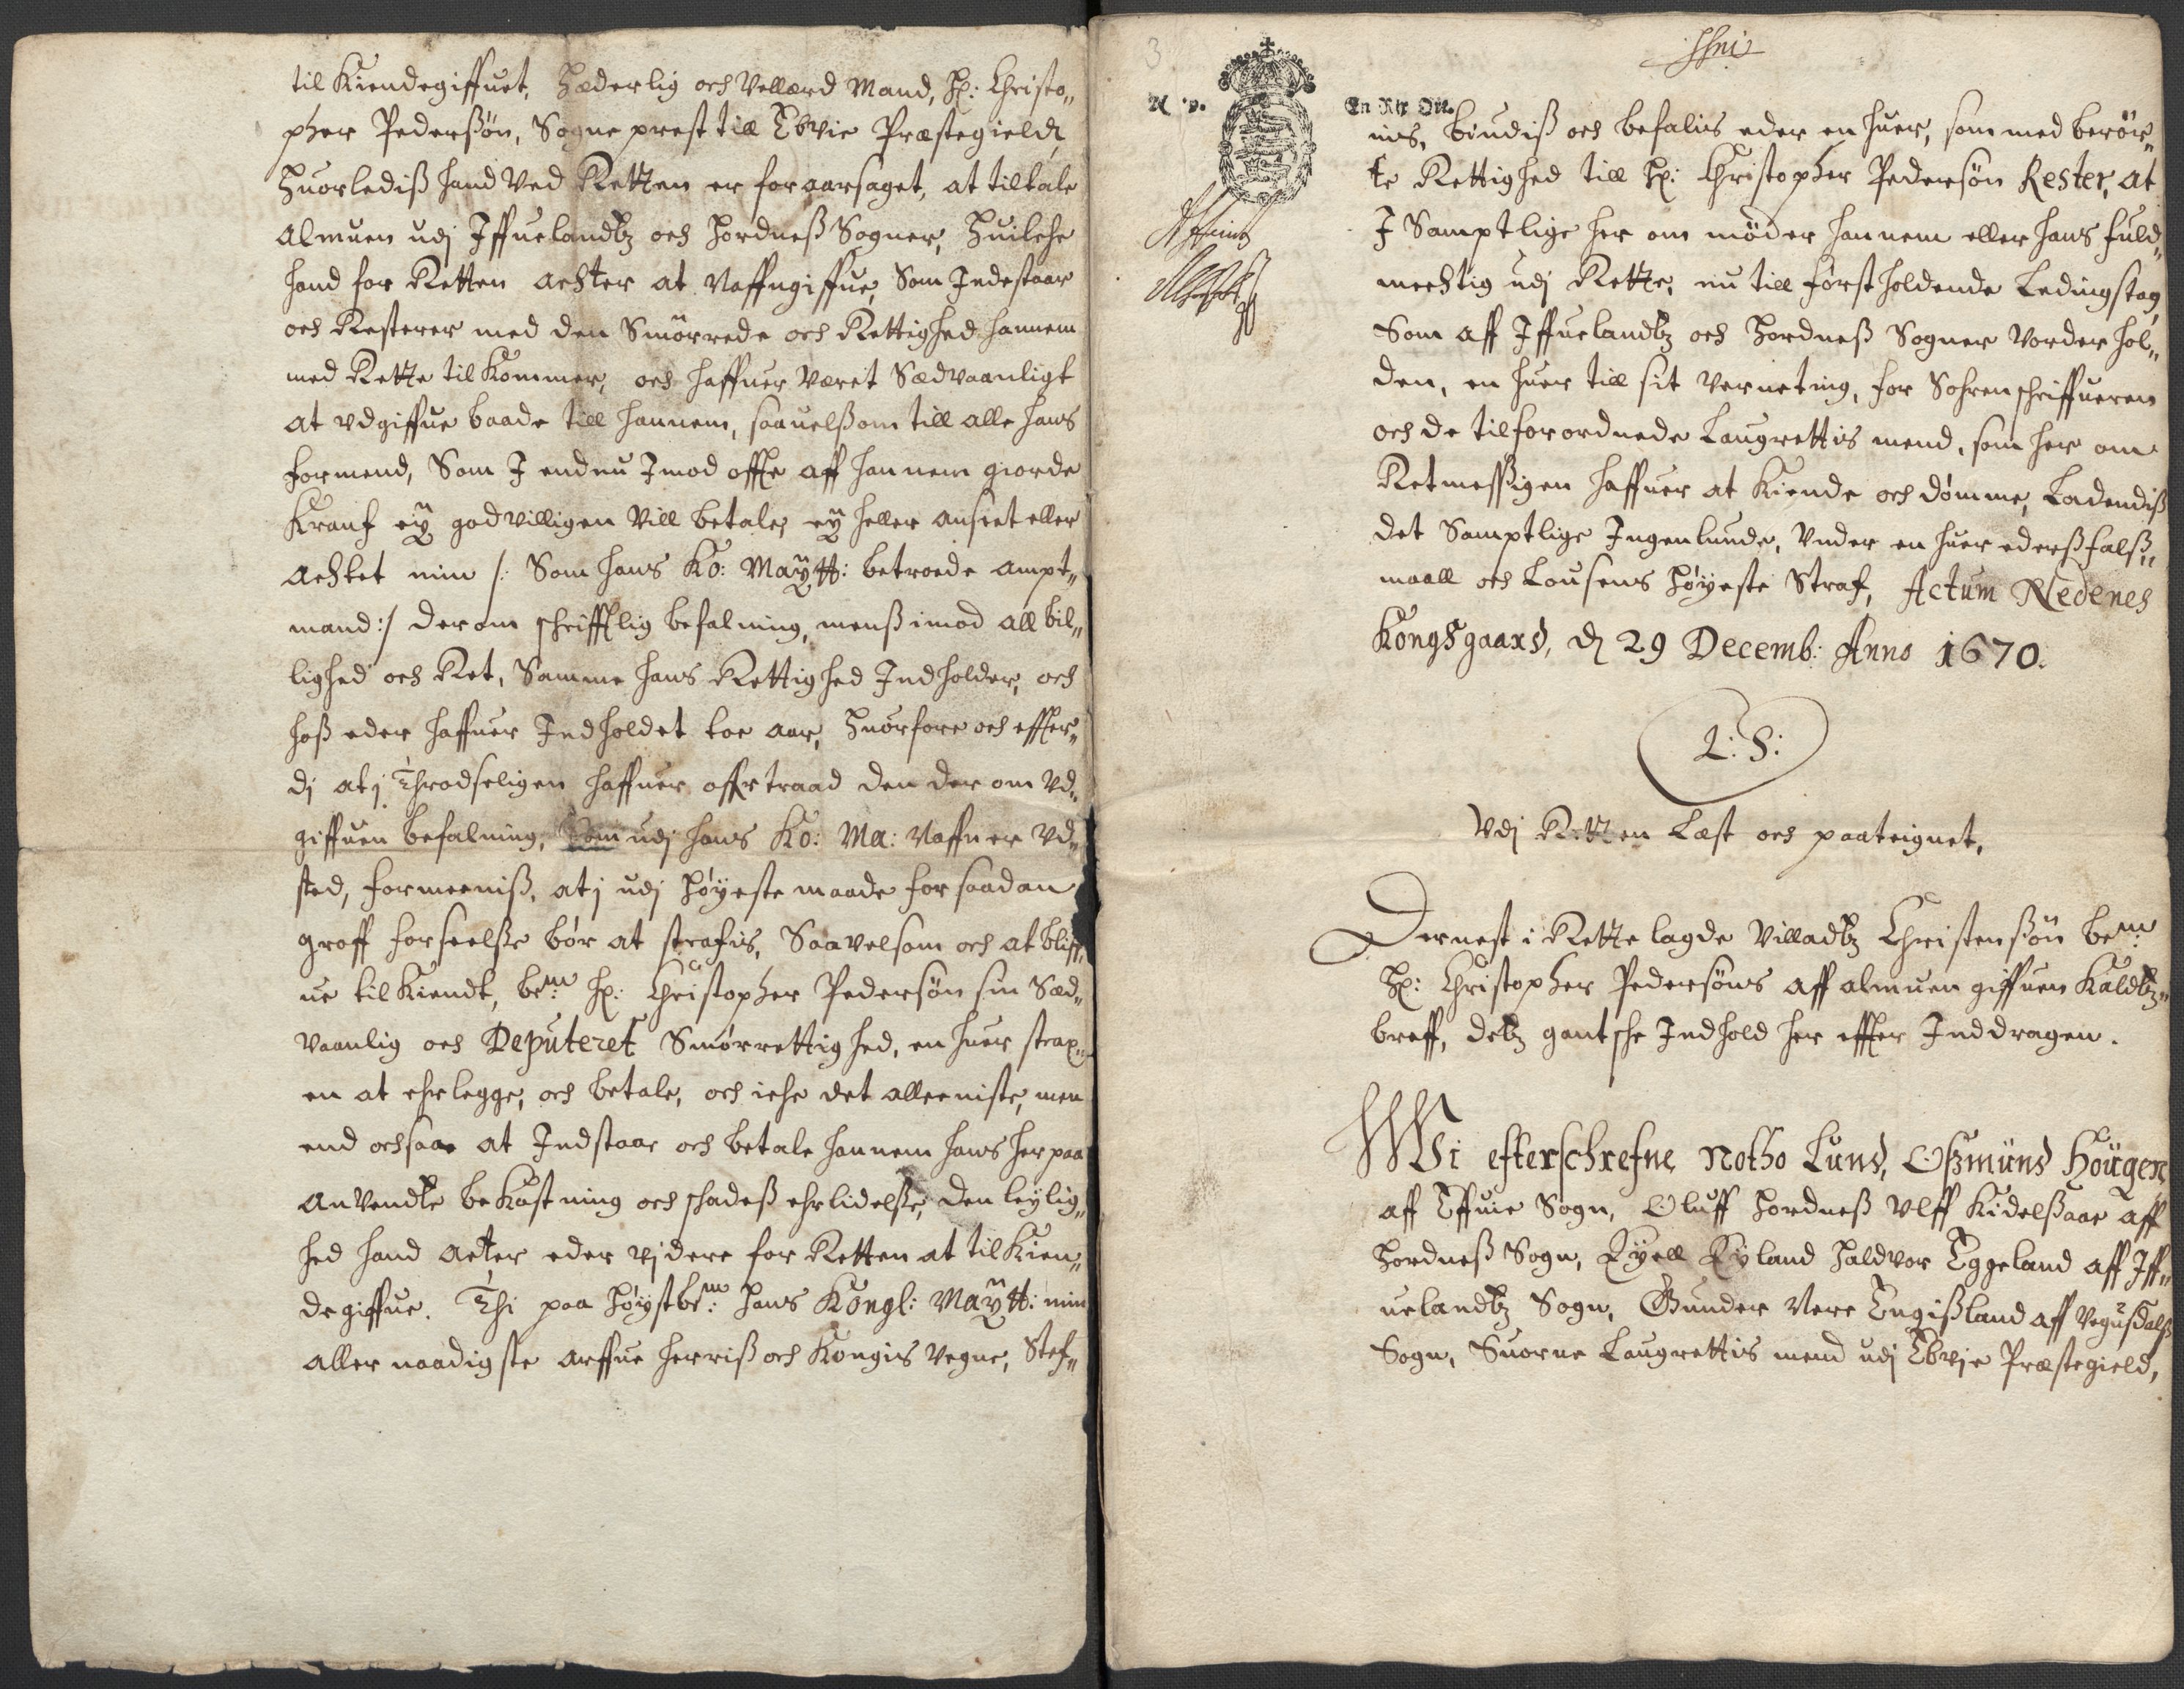 til Kiendegiffuet, Hæderlig och Vellærd Mand, Hr: Christo„
pher Pederßøn, Sogne prest till Ebvie Præstegield,
Huorlediß hand Ved Retten er foraarsaget, at tiltale
Almuen udj Iffuelandtz och Hordneß Sogner, Huilche
hand for Retten achter at Naffngiffue, Som Jndestaar
och Resterer med den Smørrede och Rettighed hannem
med Rette til Kommer, och haffuer Værit Sædvaanligt
at vdgiffue baade till hannem, saauelßom till alle hans
Formend, Som I endnu Imod offte aff hannem giorde
Kranf eÿ godvilligen Vill betale, eÿ heller anseet eller
Achtet min /: Som hans Ko: Maÿtt: betroede Ampt„
mand :/ derom schrifftlig befalning, menß imod all bil„
lighed och Ret, Samme hans Rettighed Indholder, och
hoß eder haffuer Indholdet toe aar, Huorfore och effter„
dj at j Throdseligen haffuer offrtraad den der om Vd„
giffuen befalning, Som udj hans Ko: Ma: Naffn er Vd„
sted, formeeniß, at j udj Høÿeste maade for saadan
groff forseelße bør at strafis, Saavelsom och at bliff„
ue til Kiendt, bem:te Hr: Christopher Pedersøn sin Sæd„
vaanlig och Deputeret Smørrettighed, en huer strax„
en at ehrlegge, och betale, och iche det alleeniste, men
end ochsaa at Indstaae och betale hannem hans herpaa
Anvendte bekostning och schadeß ehrlidelße, den leÿlig„
hed hand acter eder vjdere for Retten at tilkien„
degiffue. Thi paa Høÿstbem:te Hans Kongl: Maÿtt: min
aller naadigste arffue herriß och Kongis Vegne, Stef„
3
En Rtr Ort.
nis, biudiß och befalis eder en huer, som med berør„
te Rettighed till Hr: Christopher Pedersøn Rester, at
I Samptlige her om møder hannem eller hans fuld„
mechtig udj Rette, nu till først holdende Ledingstag,
Som aff Iffuelandtz och Hordneß Sogner Vorder hol„
den, en huer till sit Verneting, for Sohrenschriffueren
och de tilforordnede Laugrettis mend, som her om
Retmeßigen haffuer at Kiende och dømme, Ladendiß
det Samptlige Ingenlunde, Vnder en huer ederß falß„
maall och Lousens Høÿeste Straf, Actum Nedenes
Kongsgaard, d 29 Decemb: Anno 1670.
L: S:
Vdj Retten Læst och paateignet,
Dernest i Rette lagde Villadtz Christensßøn bem:te
Hr: Christopher Pedersøns aff almuen giffuen Kaldtz„
breff, detz gantsche Indhold her effter Inddragen.
Wi efterschrefne Notho Lund, Oßmund Hougen,
aff Effuie Sogn, Oluff Hordneß Vlff Kidelßaae aff
Hordneß Sogn, Kÿell Rÿland Haldvor Eggeland aff Iff„
uelandtz Sogn, Gunder Vere Engißland aff Vegußdalß
Sogn, Suorne Laugrettis mend udj Ebvje Præstegield,